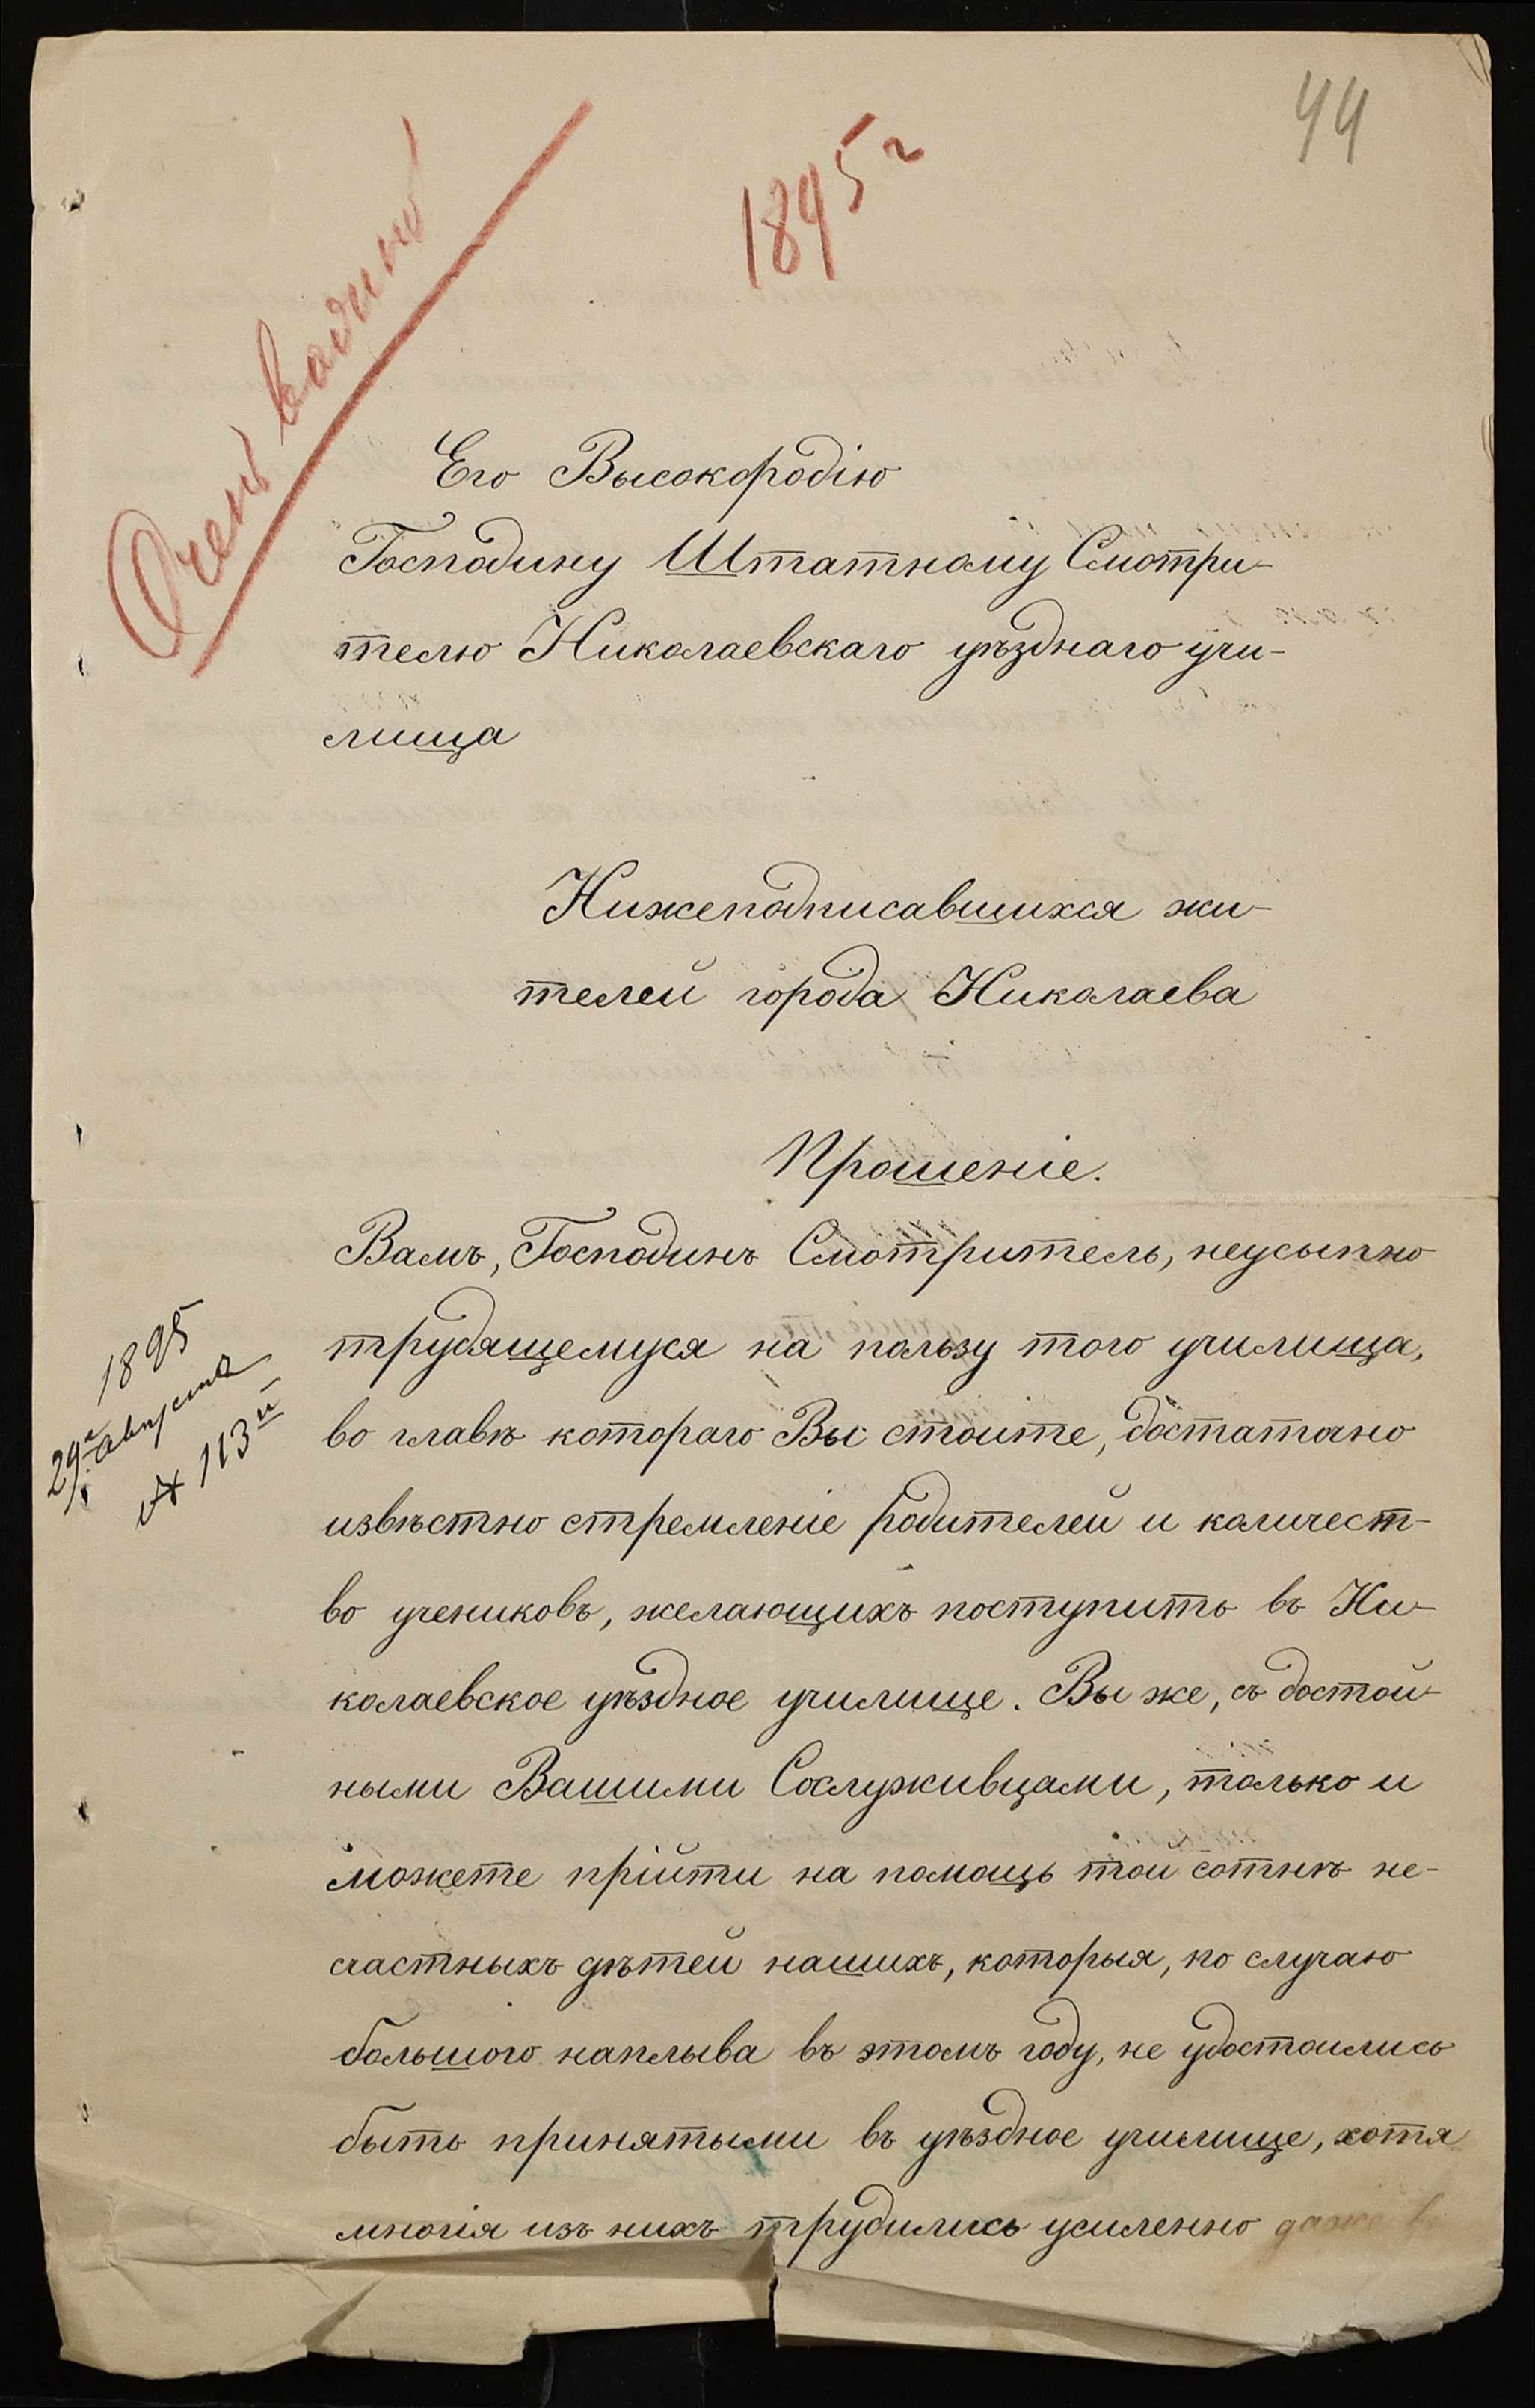 44
1895 г
Очень важно
Его Высокородію
Господину Штатному Смотри-
телю Николаевскаго уѣзднаго учи-
лища
Нижеподписавшихся жи-
телей города Николаева
Прошеніе.
Вамъ, Господинъ Смотритель, неусыпно
трудящемуся на пользу того училища,
во главѣ котораго Вы стоите, достаточно
извѣстно стремленіе родителей и количест-
во учениковъ, желающихъ поступить въ Ни-
колаевское уѣздное училище. Вы же, съ достой-
ными Вашими Сослуживцами, только и
можете прійти на помощь той сотнѣ не-
счастныхъ дѣтей нашихъ, которыя, по случаю
большого наплыва въ этомъ году, не удостоились
быть принятыми въ уѣздное училище, хотя
многія изъ нихъ трудились усиленно даже въ
1895
29 августа
№ 113